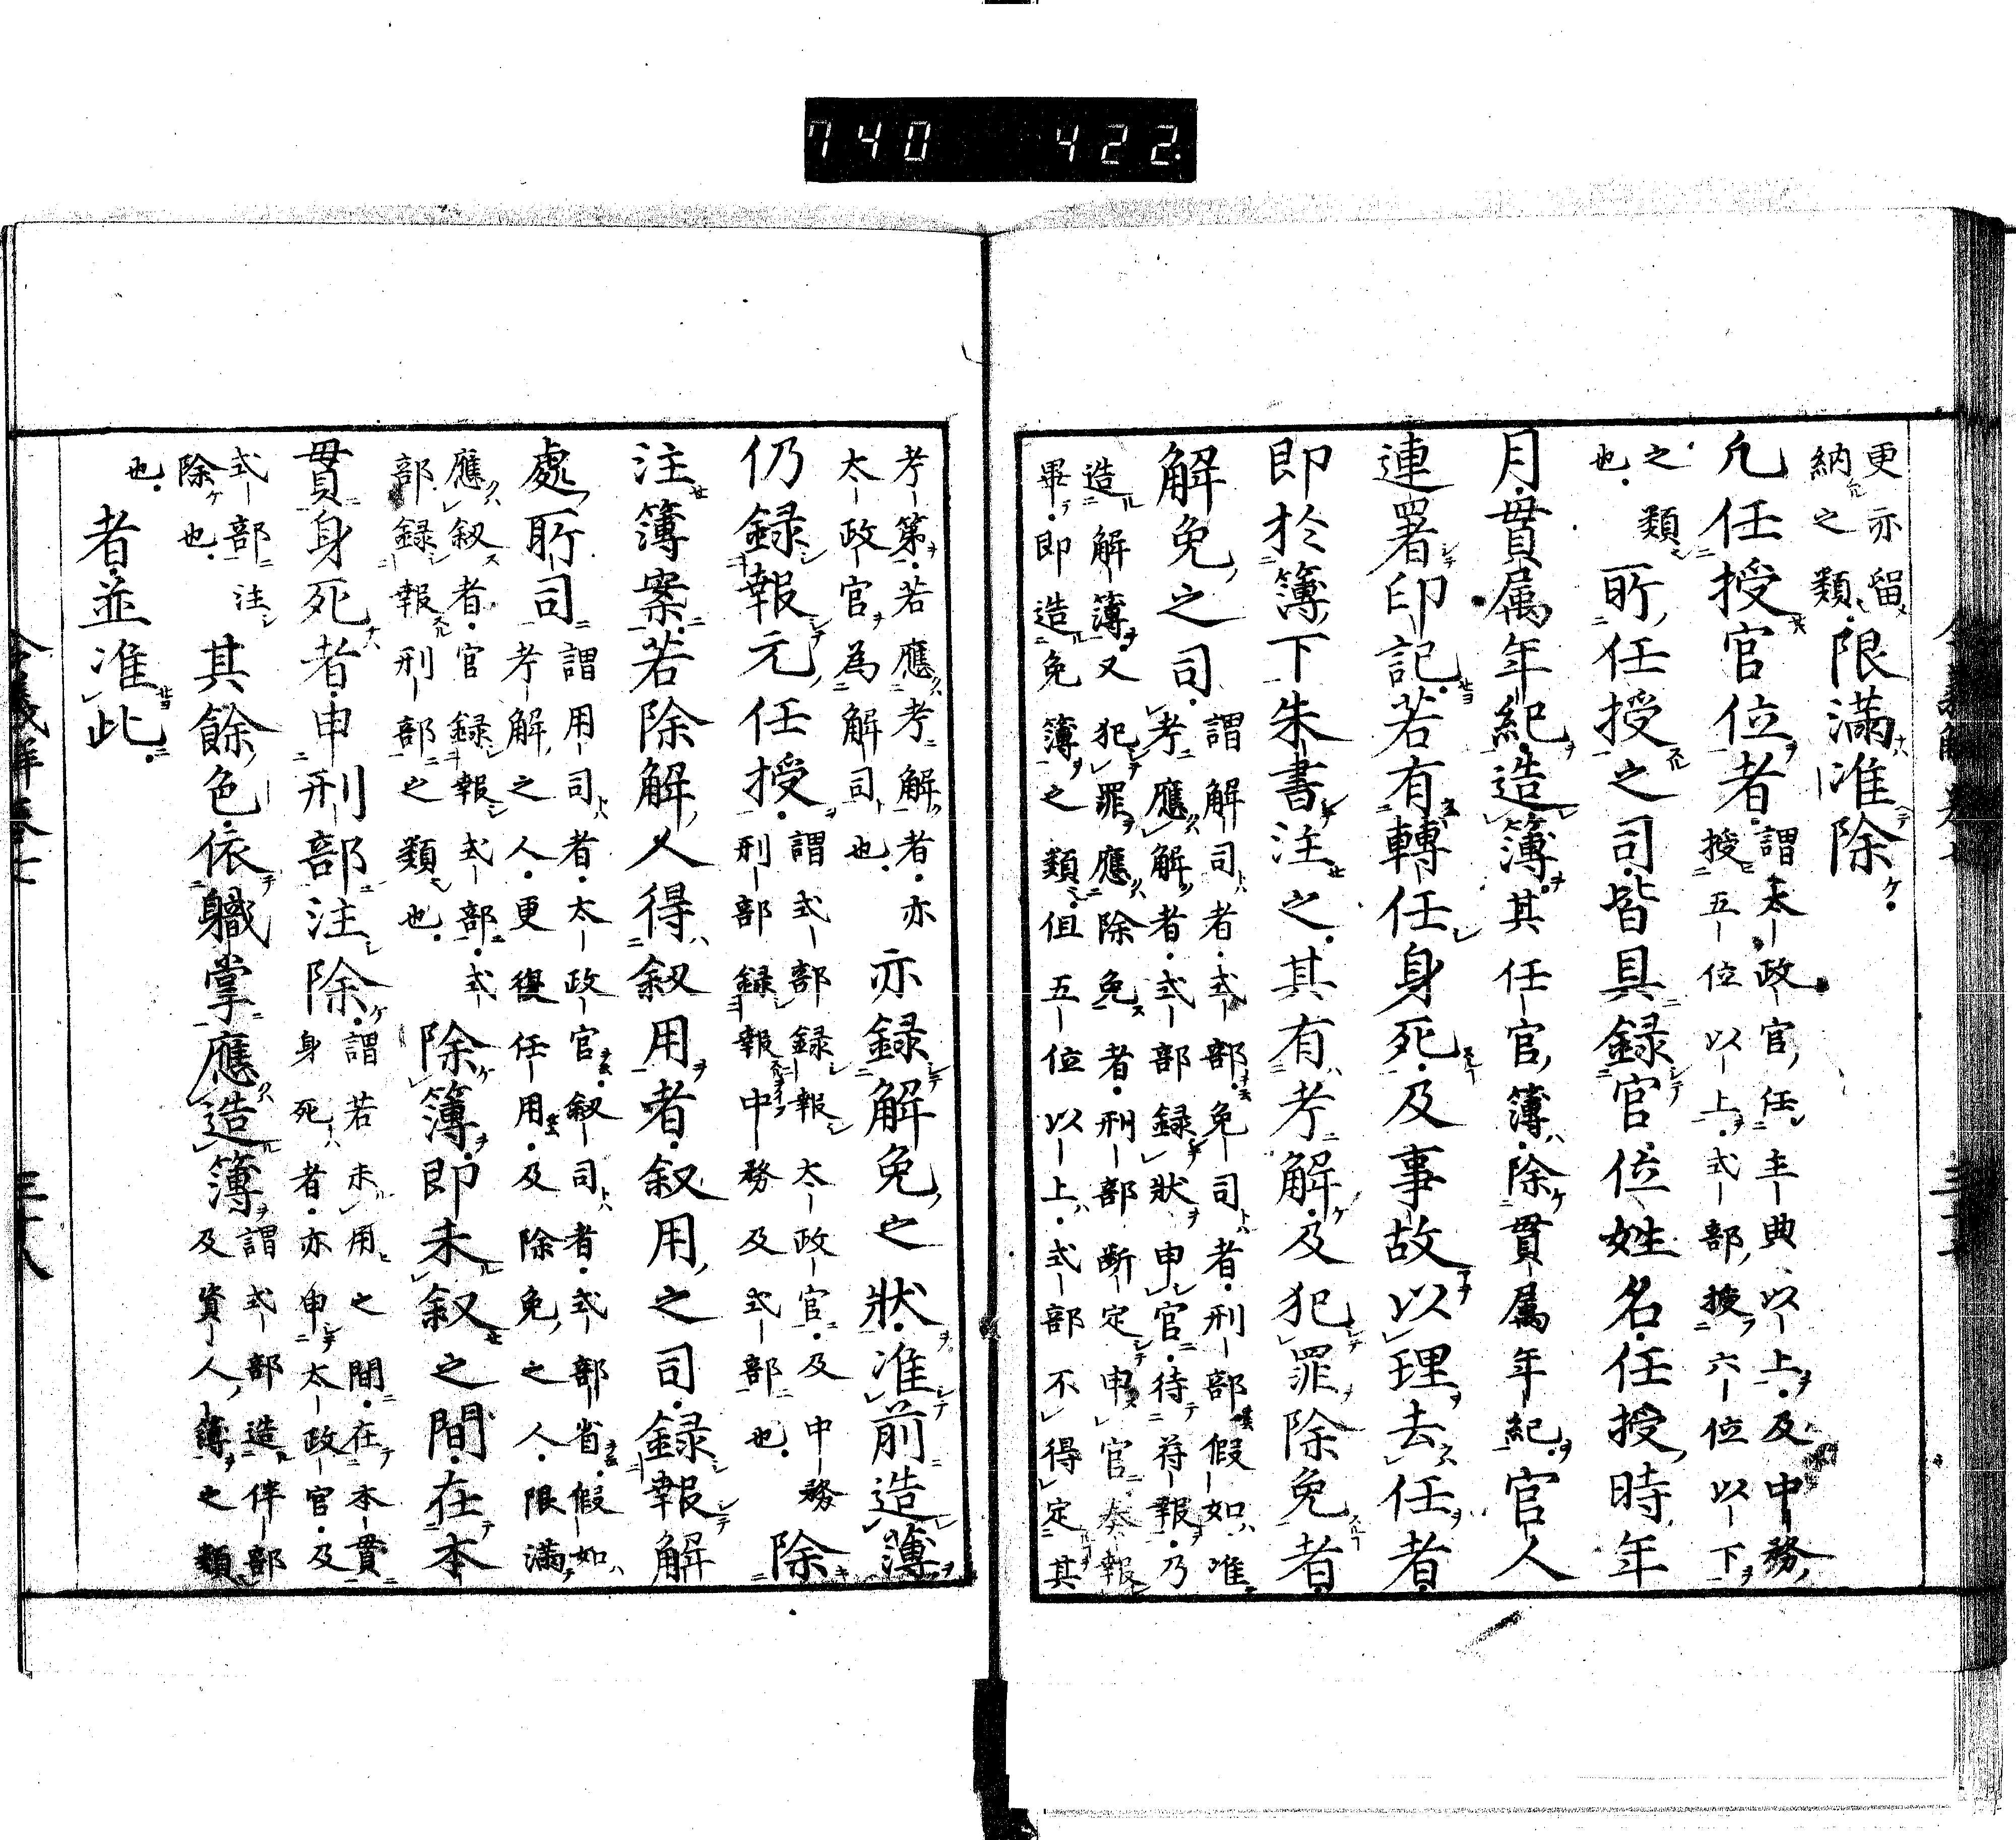 740 422
更亦留
納之類限滿准除
凡任授官位者謂太政官任主典以上及中務
授五位以上式部授六位以下
之類
也所任授之司皆具録官位姓名任授時年
月貫属年紀造簿其任官簿除貫属年紀官人
連署印記若有轉任身死及事故以理去任者
即於簿下朱書注之其有考解及犯罪除免者
解免之司謂解司者式部免司者刑部假如准
考應解者式部録狀申官待符報乃
造解簿又犯罪應除免者刑部断定申官奏報
畢即造免簿之類但五位以上式部不得定其
考第若應考解者亦
太政官為解司也亦録解免之狀准前造簿
仍録報元任授謂式部録報太政官及中務
刑部録報中務及式部也除
注簿案若除解人得叙用者叙用之司録報解
處所司謂用司者太政官叙司者式部省假如
考解之人更復任用及除免之人限滿
應叙者官録報式部式
部録報刑部之類也除簿即未叙之間在本
貫身死者申刑部注除謂若未用之間在本貫
身死者亦申太政官及
式部注
除也其餘色依職掌應造簿謂式部造伴部
及資人簿之類
也者並准此